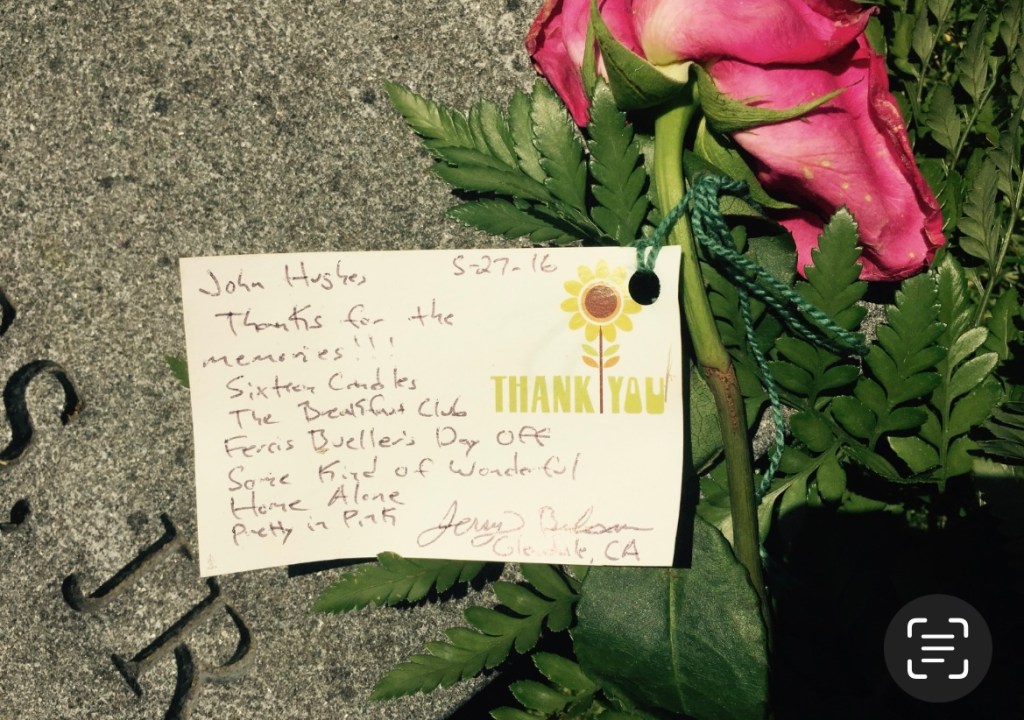 John Hughes 5-27-16
Thanks for the
memories!!!
Sixteen Candles
The Breakfast Club
Ferris Bueller's Day Off
Some Kind of Wonderful
Home Alone
Pretty in Pink
THANK YOU
Jerry
Glendale, CA